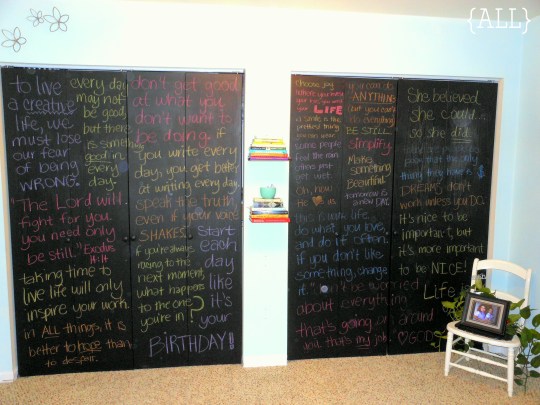 {ALL}
to live
a creative
life, we
must lose
our fear
of being
WRONG.
every day
may not
be good,
but there
is something
good in
every
day.
"The Lord will
fight for you
you need only
be still." Exodus
14:14
taking time to
live life will only
inspire your work.
in ALL things, it is
better to hope than
to despair.
don't get good
at what you
don't want to
be doing. if
you write every
day, you get better
at writing every day.
speak the truth
even if your voice
SHAKES.
if you're always
racing to the
next moment,
what happens
to the one
you're in?
start
each
day
like
it's
your
BIRTHDAY!!
choose joy
LIFE
a smile is the
prettiest thing
you can wear.
some people
feel the rain
others just
get wet.
you can do
ANYTHING
(but you can't do
everything)
BE STILL.
simplify.
Make
something
Beautiful.
tomorrow is
a new DAY.
this is your life.
do what you love,
and do it often.
if you don't like
something, change
it."
She believed
she could...
so she did.
DREAMS don't
work unless you DO.
it's nice to be
important, but
it's more important
to be NICE!
don't be worried
about everything
that's going on around
you. that's my job.
♡GOD
{ALL}